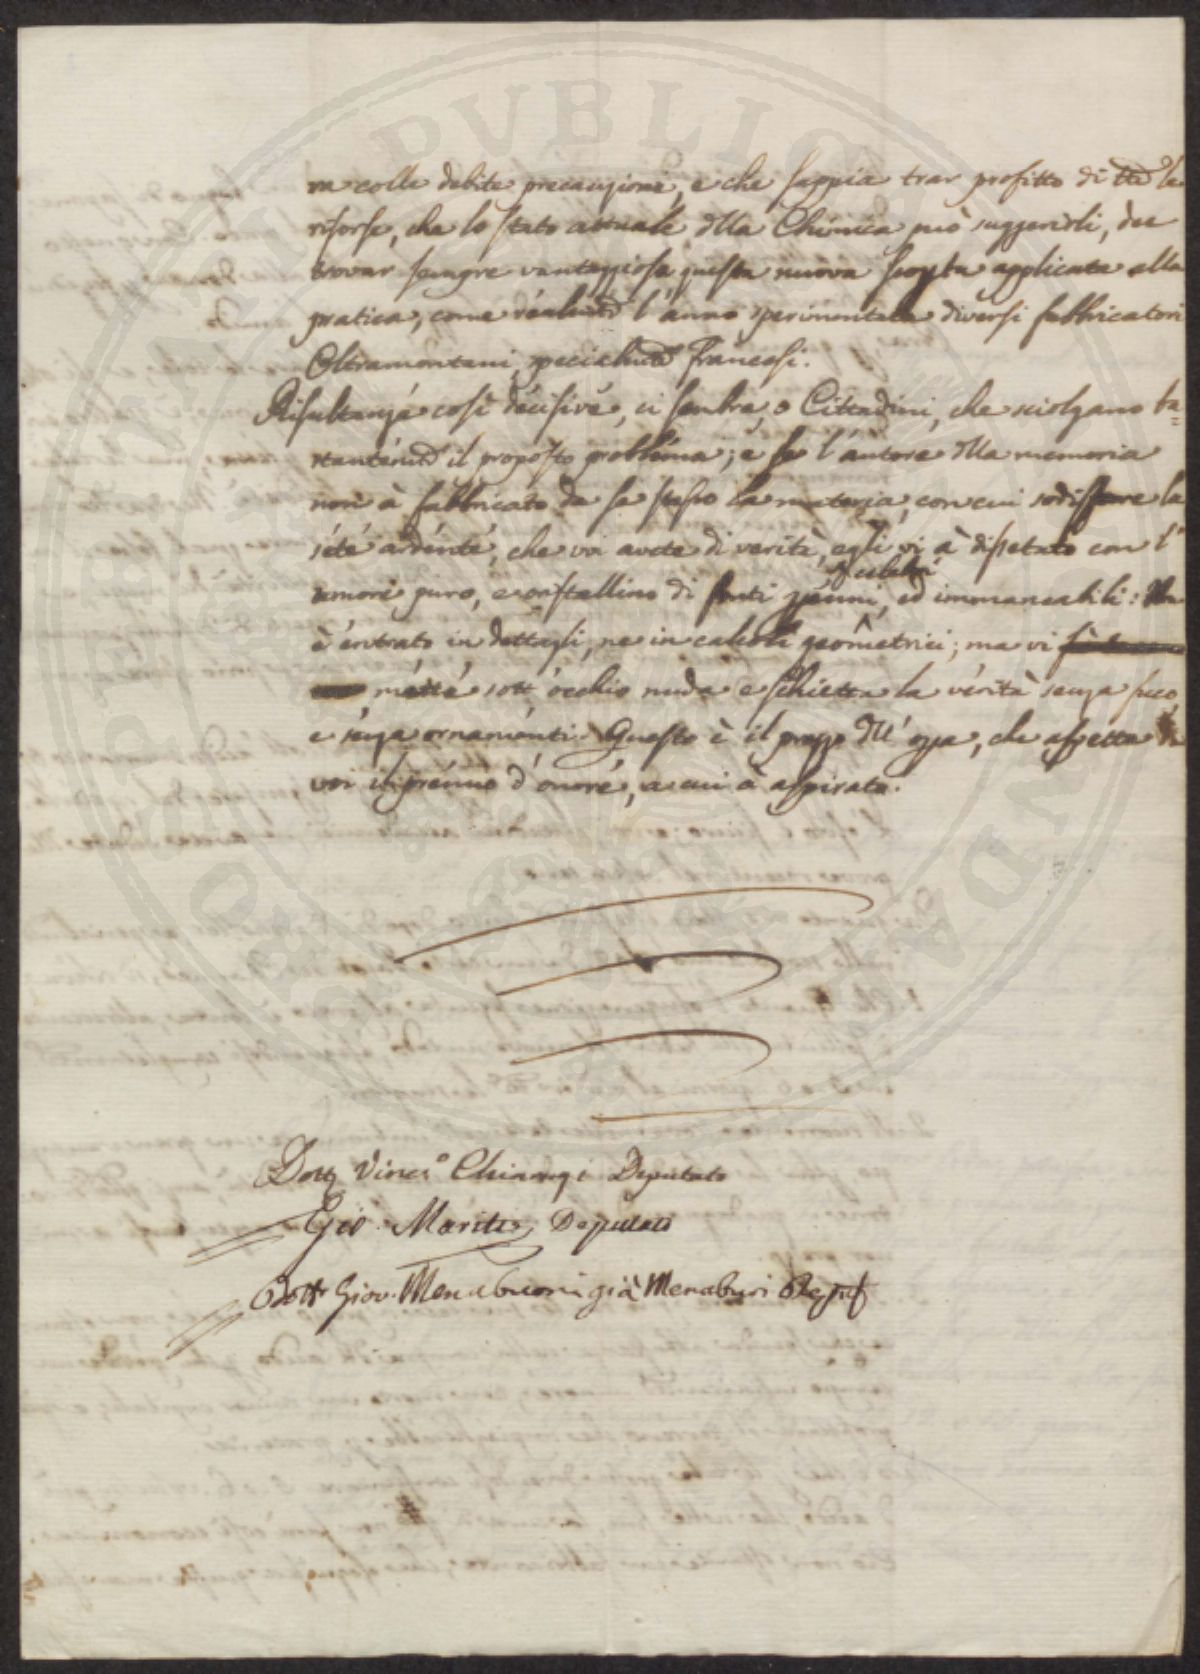 ra colle debite precauzioni, e che sappia trar profitto di tte le
risorse, che lo stato attuale dlla Chimica può suggerirli, dee
trovar sempre vantaggiosa questa nuova scopta applicata alla
pratica, come realmte l'anno sperimentata diversi fabbricatori
Oltramontani specialmte Francesi.
Risultanze così decisive, ci sembra, o Cittadini, che sciolgano ba=
stantemte il proposto problema; e se l'autore dlla memoria
non à fabbricato da se stesso la materia, con cui sodisfare la
sete ardente, che voi avete di verità, egli vi à dissetato con l'
umore puro, e cristallino di fonti
e celebri
perenni, ed immancabili: Non
è entrato in dettagli, ne in calcoli geometrici; ma vi
mette sott'occhio nuda e schietta la verità senza fuco,
e senza ornamenti. Questo è il prezzo dll'opa, che aspetta da
voi il premio d'onore, a cui à aspirato.
Dottr Vincio Chiarugi Deputato
Gio. Mariti Deputato
Dottr Giov. Menabuoni già Menabuoi
PUBLICA